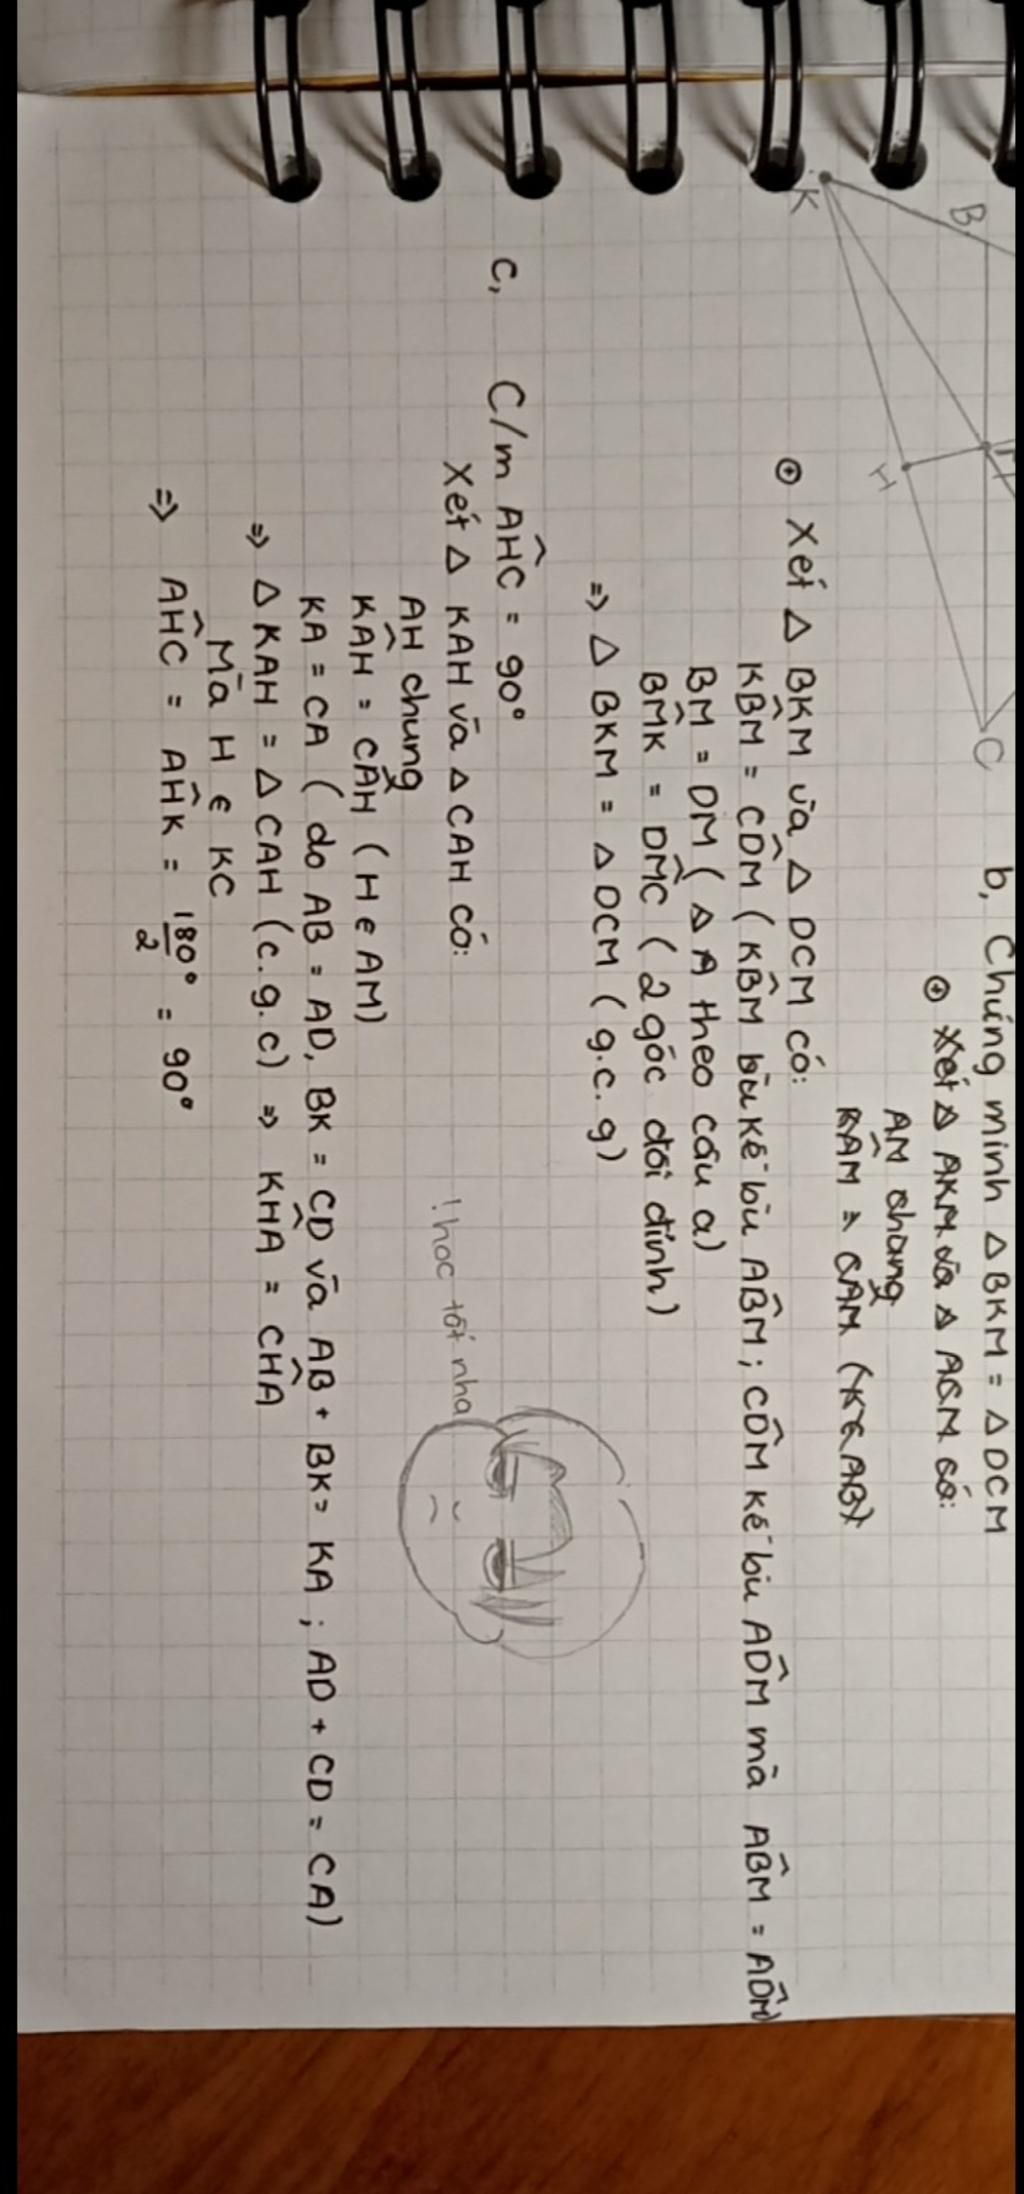 B
K
H
C
b, Chứng minh △ BKM = △ DCM
⊕ Xét △ AKM và △ ACM có:
AM chung
KAM = CAM (K∈AB)
⊕ Xét △ BKM và △ DCM có:
KB̂M = CD̂M ( KB̂M bù kề bù AB̂M ; CD̂M kề bù AD̂M mà AB̂M = AD̂M)
BM = DM ( △ A theo câu a)
BM̂K = DM̂C ( 2 góc đối đỉnh )
=> △ BKM = △ DCM ( g.c.g )
c, C/m AĤC = 90°
Xét △ KAH và △ CAH có:
AH chung
KÂH = CÂH ( H ∈ AM)
KA = CA ( do AB = AD, BK = CD và AB + BK = KA ; AD + CD = CA )
=> △ KAH = △ CAH ( c.g.c ) => KĤA = CĤA
Mà H ∈ KC
=> AĤC = AĤK = 180°/2 = 90°
! học tốt nha